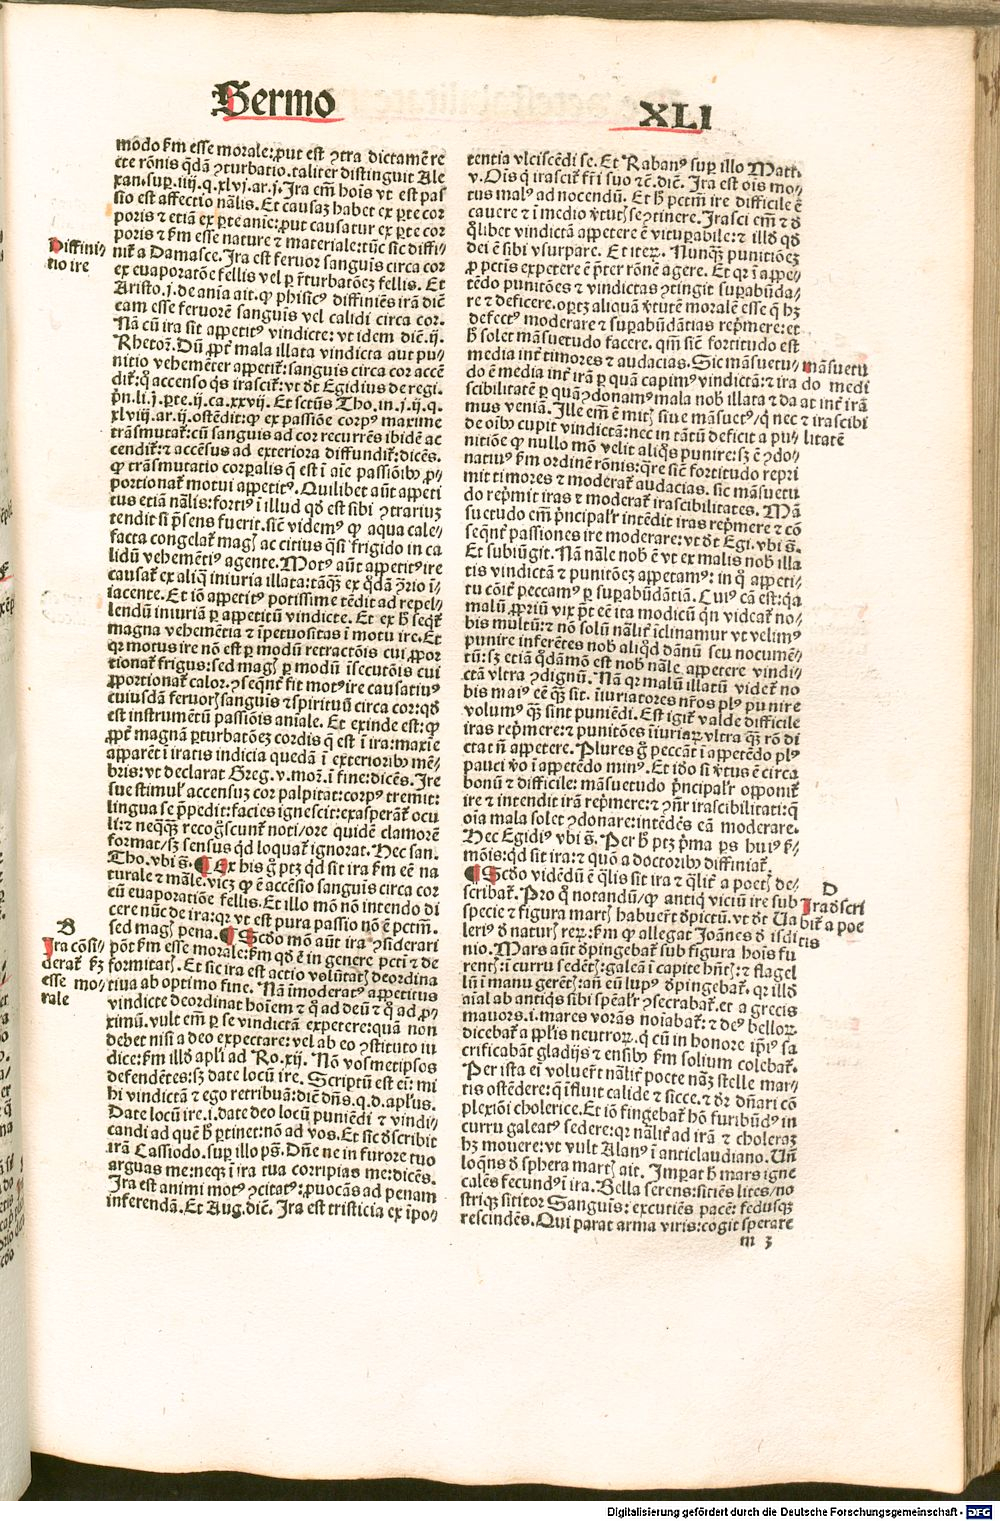 Sermo
XLI
mōdo ẜm esse morale: ꝓut est ꝯtra dictamē re
cte rōnis q̄dā ꝯturbatio. taliter distinguit Ale
xan. suꝑ. iiij. q. xlvj. ar. j. Ira em̄ hoīs vt est pas
sio est affectio nālis. Et causaꝫ habet ex ꝑte cor
poris ⁊ etiā ex ꝑte anīe: ꝓut causatur ex ꝑte cor
poris ⁊ ẜm esse nature ⁊ materiale: tūc sic diffi-
nit᷑ a Damasce. Ira est feruor sanguīs circa cor
ex euaporatōe fellis vel ꝑ
Aristo. j. de anīa ait. ꝙ phisicꝰ diffiniēs irā diē
eam esse feruorē sanguīs vel calidi circa cor.
Nā cū ira sit appetitꝰ vindicte: vt idem diē. ij.
Rhetoꝝ. Dū ꝓpt᷑ mala illata vindicta aut pu-
nitio vehemēter appetit᷑: sanguis circa cor accē
dit᷑: q̊ accenso q̄s irascit᷑: vt dt̄ Egidius de regi.
pn̄. li. j. ꝑte. ij. ca. xxvij. Et sctūs Tho. in. j. ij. q.
xlviij. ar. ij. ostēdit: ꝙ ex passiōe corpꝰ maxime
trāsmutat᷑: cū sanguis ad cor recurrēs ibidē ac
cendit᷑: ⁊ accēsus ad exteriora diffundit᷑: dicēs.
ꝙ trāsmutatio corꝑalis q̄ est ī aīe passiōibꝰ ꝓ-
portionat᷑ motui appetitꝰ. Quilibet aūt appeti
tus etiā nālis: fortiꝰ ī illud qd̄ est sibi ꝯtrariuꝫ
tendit si p̄sens fuerit. sic̄ videmꝰ ꝙ aqua cale-
facta congelat᷑ magꝭ ac citius q̄si frigido in ca
lidū vehemētiꝰ agente. Motꝰ aūt appetitꝰ ire
causat᷑ ex aliq̄ iniuria illata: tāq̄ꝫ ex q̊dā ꝯrio ī-
iacente. Et iō appetitꝰ potissime tēdit ad repel-
lendū iniuriā ꝑ appetitū vindicte. Et ex h̄ seqt᷑
magna vehemētia ⁊ īpetuositas ī motu ire. Et
qꝛ motus ire nō est ꝑ modū retractōis cui ꝓpor
tionat᷑ frigus: sed magꝭ ꝑ modū īsecutōis cui
ꝓportionat᷑ calor. ꝯseqn̄t᷑ fit motꝰ ire causatiuꝰ
cuiusdā feruorꝭ sanguīs ⁊ spirituū circa cor: qd̄
est instrumētū passiōis anīale. Et exinde est: ꝙ
ꝓpt᷑ magnā ꝑturbatōeꝫ cordis q̄ est ī ira: maxīe
apparēt ī iratis indicia quedā ī exterioribꝰ mē-
bris: vt declarat Greg. v. moꝝ. ī fine: dicēs. Ire
sue stimul᷑ accensuꝫ cor palpitat: corpꝰ tremit:
lingua se p̄pedit: facies ignescit: exasperāt᷑ ocu
li: ⁊ neq̄q̄ꝫ recogscunt᷑ noti/ore quidē clamorē
format/sꝫ sensus qd loquat᷑ ignorat. Hec san.
Tho. vbi s̄. ¶ Ex his g̊ ptꝫ qd sit ira ẜm eē na
turale ⁊ māle. vicꝫ ꝙ ē accēsio sanguis circa cor
cū euaporatiōe fellis. Et illo mō nō intendo di
cere nūc de ira: qꝛ vt est pura passio nō ē pctm̄.
sed magꝭ pena. ¶ Scd̄o mō aūt ira ꝯsiderari
pōt ẜm esse morale: ẜm qd̄ ē in genere pcti ⁊ de
formitatꝭ. Et sic ira est actio volūtatꝭ deordina
tiua ab optimo fine. Nā īmoderatꝰ appetitus
vindicte deordinat hoīem ⁊ q̄ ad deū ⁊ q̄ ad ꝓ-
ximū. vult em̄ ꝑ se vindictā expetere: quā non
debet nisi a deo expectare: vel ab eo ꝯstituto iu
dice: ẜm illd̄ apl̄i ad Ro. xij. Nō vosmetipsos
defendētes: sꝫ date locū ire. Scriptū est em̄: mi
hi vindictā ⁊ ego retribuā: diē dn̄s. q. d. apl̄us.
Date locū ire. i. date deo locū puniēdi ⁊ vindi-
candi ad quē h̄ ꝑtinet: nō ad vos. Et sic dscribit
irā Cassiodo. suꝑ illo ps̄. Dn̄e ne in furore tuo
arguas me: neqꝫ ī ira tua corripias me: dicēs.
Ira est animi motꝰ ꝯcitatꝰ: ꝓuocās ad penam
inferendā. Et Aug. diē. Ira est tristicia ex īpo-
tentia vlciscēdi se. Et Rabanꝰ suꝑ illo Matt.
v. Oīs q̄ irascit᷑ fr̄i suo ⁊c̄. diē. Ira est oīs mo-
tus malꝰ ad nocendū. Et h̄ pctm̄ ire difficile ē
cauere ⁊ ī medio vtutꝭ se ꝯtinere. Irasci em̄ ⁊ d̄
q̄libet vindictā appetere ē vituꝑabile: ⁊ illd̄ qd̄
dei ē sibi vsurpare. Et iteꝝ. Nunq̄ꝫ punitiōeꝫ
ꝓ pctis expetere ē p̄ter rōnē agere. Et qꝛ ī appe-
tēdo punitōes ⁊ vindictas ꝯtingit suꝑabūda-
re ⁊ deficere. oꝑtꝫ aliquā vtutē moralē esse q̄ hꝫ
defectꝰ moderare ⁊ suꝑabūdātias rep̄mere: et
h̄ solet māsuetudo facere. qm̄ sic̄ fortitudo est
media int᷑ timores ⁊ audacias. Sic māsuetu-
do ē media int᷑ irā ꝑ quā capimꝰ vindictā: ⁊ ira
scibilitatē ꝑ quā ꝯdonamꝰ mala nob̄ illata ⁊ da
mus veniā. Ille em̄ ē mitꝭ siue māsuetꝰ/q̄ nec
de oībꝰ cupit vindictā: nec in tātū deficit a pu-
nitiōe ꝙ nullo mō velit aliq̄s punire: sꝫ ē ꝯdo-
natiuꝰ ẜm ordinē rōnis: q̄re sic̄ fortitudo repri
mit timores ⁊ moderat᷑ audacias. sic māsuetu
do rep̄mit iras ⁊ moderat᷑ irascibilitates. Mā
suetudo em̄ p̄ncipal̓r intēdit iras rep̄mere ⁊ cō
seqn̄t᷑ passiones ire moderare: vt dt̄ Egi. vbi s̄.
Et subiūgit. Nā nāle nob̄ ē vt ex malis nob̄ illa
tis vindictā ⁊ punitōeꝫ appetamꝰ: in q̊ appeti-
tu cōit᷑ peccamꝰ ꝑ suꝑabūdātiā. Cuiꝰ cā est: qꝛ
malū ꝓpriū vix pt̄ eē ita modicū qn̄ videat᷑ no-
bis multū: ⁊ nō solū nālit᷑ īclinamur vt velimꝰ
punire inferētes nob̄ aliqd̄ dānū seu nocumē-
tū: sꝫ etiā q̊dāmō est nob̄ nāle appetere vindi-
ctā vltra ꝯdignū. Nā qꝛ malū illatū videt᷑ no
bis maiꝰ eē q̄ꝫ sit. īiuriatores nr̄os plꝰ punire
volumꝰ q̄ꝫ sint puniēdi. Est igit᷑ valde difficile
iras rep̄mere: ⁊ punitōes īiuriaꝝ vltra q̄ꝫ rō di
ctat n̄ appetere. Plures g̊ peccāt ī appetēdo plꝰ
pauci v̄o ī appetēdo minꝰ. Et idō si v̄tus ē circa
bonū ⁊ difficile: māsuetudo p̄ncipal̓r opponit᷑
ire ⁊ intendit irā rep̄mere: ⁊ ꝯn̄r irascibilitati: q̄
oīa mala solet ꝯdonare: intēdēs eā moderare.
Hec Egidiꝰ vbi s̄. Per h̄ ptꝫ p̄ma ꝑs huiꝰ ẜ-
mōis: qd sit ira: ⁊ quō a doctoribꝰ diffiniat᷑.
¶ Scd̄o vidēdū ē q̄lis sit ira ⁊ q̄lit᷑ a poetꝭ de-
scribat᷑. Pro q̊ notandū/ꝙ antiq̄ viciū ire sub
specie ⁊ figura martꝭ habuer̄t dpictū. vt dt̄ Ua
leriꝰ d̄ naturꝭ reꝝ: ẜm ꝙ allegat Joānes d̄ isdi
nio. Mars aūt dpingebat᷑ sub figura hoīs fu
rentꝭ: ī curru sedētꝭ: galeā ī capite hn̄tꝭ: ⁊ flagel
lū ī manu gerētꝭ: an̄ eū lupꝰ dpingebat᷑. qꝛ illd̄
aīal ab antiq̄s sibi sp̄ealr̓ ꝯsecrabat᷑. et a grecis
mauors. i. mares vorās noīabat᷑: ⁊ deꝰ belloꝝ
dicebat᷑ a ppl̓is neutroꝝ. q̄ cū in honore ip̄iꝰ sa
crificabāt gladijs ⁊ ensibꝰ ẜm solium colebat᷑.
Per ista em̄ voluer̄t nālit᷑ poete naꝫ stelle mar-
tis ostēdere: q̄ īfluit calide ⁊ sicce. ⁊ dr̄ dn̄ari cō
plexiōi cholerice. Et iō fingebat᷑ hō furibūdꝰ in
curru galeatꝰ sedere: qꝛ nālit᷑ ad irā ⁊ choleraꝫ
hꝫ mouere: vt vult Alanꝰ ī anticlaudiano. Un̄
loqn̄s d̄ sphera martꝭ ait. Imꝑat h̄ mars igne
calēs fecundꝰ ī ira. Bella serens: sitiēs lites/no
striqꝫ sititor Sanguis: excutiēs pacē: fedusqꝫ
rescindēs. Qui parat arma viris: cogit sperare
m 3
Diffini-
tio ire
B
Ira cōsi-
derat᷑ ẜꝫ
esse mo-
rale
māsuetu
do medi
at int᷑ irā
⁊ irascibi
litatē
D
Ira dscri
bit᷑ a poe
tis
Digitalisierung gefördert durch die Deutsche Forschungsgemeinschaft - DFG